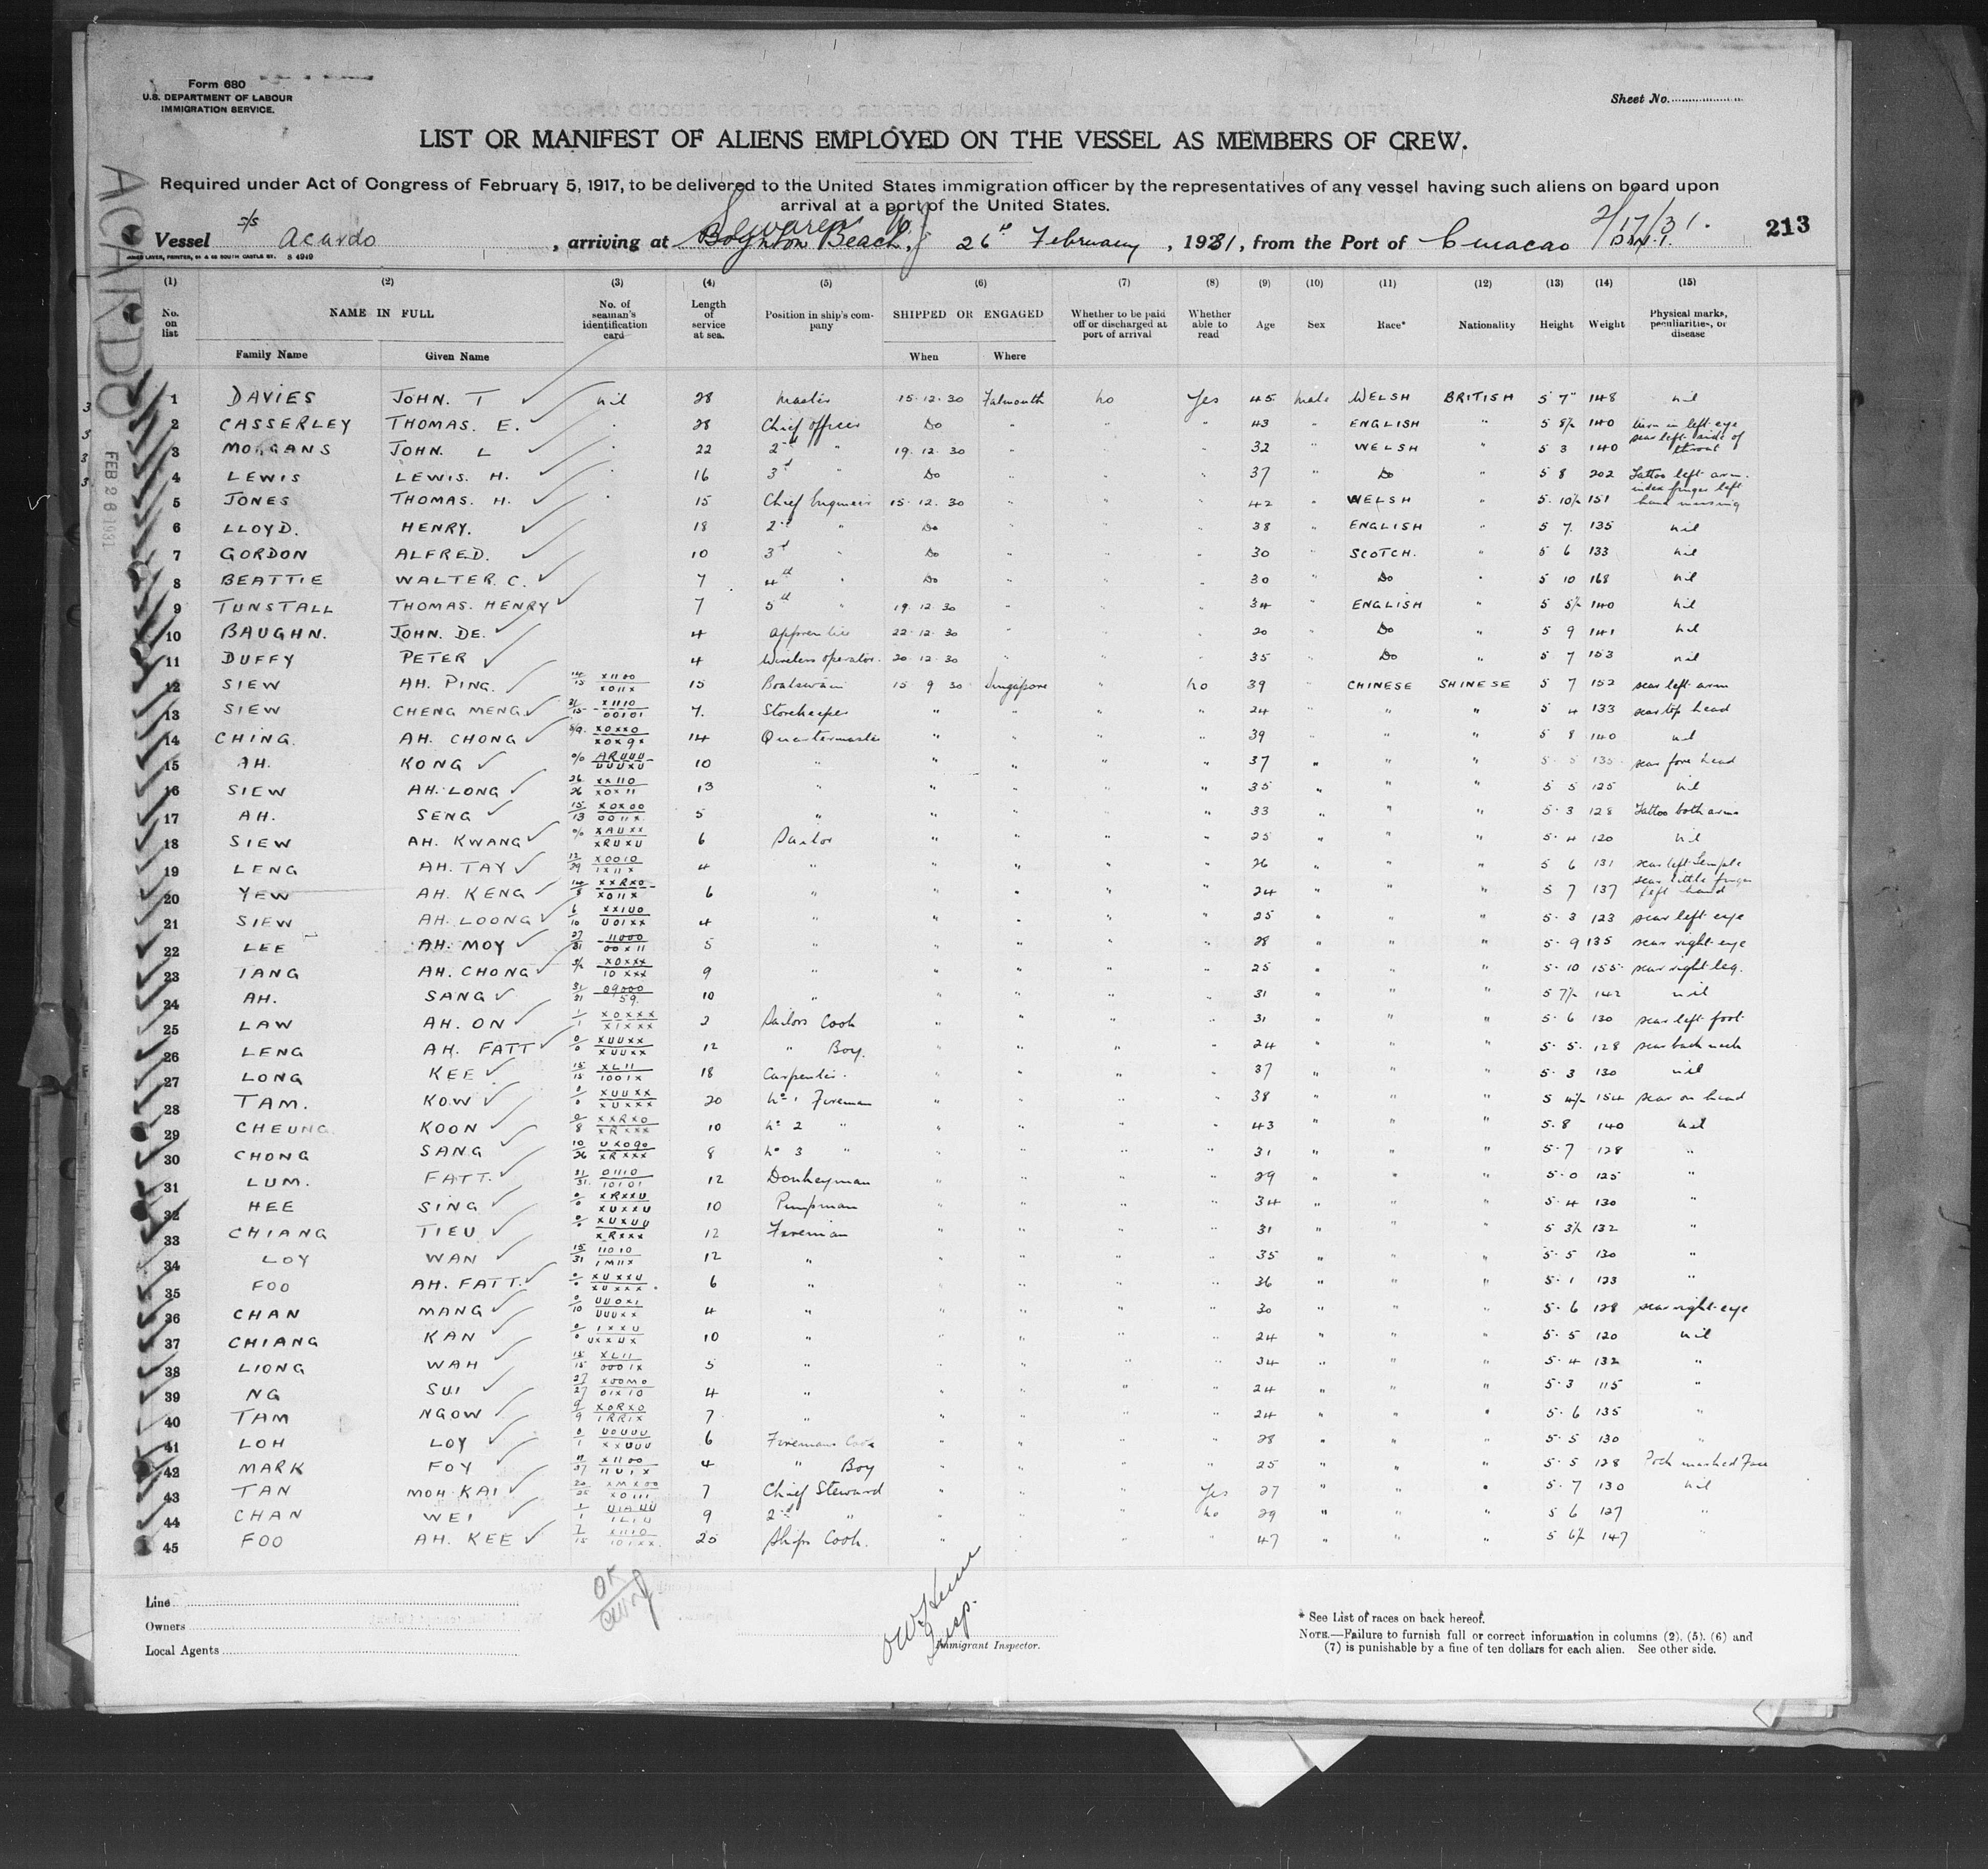 Form 680
U.S. DEPARTMENT OF LABOUR
IMMIGRATION SERVICE.
Sheet No.
LIST OR MANIFEST OF ALIENS EMPLOYED ON THE VESSEL AS MEMBERS OF CREW.
Required under Act of Congress of February 5, 1917, to be delivered to the United States immigration officer by the representatives of any vessel having such aliens on board upon
arrival at a port of the United States.
Vessel S/S Acardo, arriving at Boynton Beach, 26th February, 1931, from the Port of Curacao 2/17/31. 213
ACARDO
FEB 26 1931
(1) (2) (3) (4) (5) (6) (7) (8) (9) (10) (11) (12) (13) (14) (15)
No. on list NAME IN FULL No. of seaman's identification card Length of service at sea. Position in ship's company SHIPPED OR ENGAGED Whether to be paid off or discharged at port of arrival Whether able to read Age Sex Race* Nationality Height Weight Physical marks, peculiarities, or disease
Family Name Given Name When Where
1 DAVIES JOHN. T nil 28 Master 15.12.30 Falmouth No Yes 45 Male WELSH BRITISH 5 7" 148 nil
2 CASSERLEY THOMAS. E. 28 Chief officer Do " " " 43 " ENGLISH " 5 8½ 140 left eye
3 MORGANS JOHN. L 22 2nd " 19.12.30 " " " 32 " WELSH " 5 3 140 scar left side of throat
4 LEWIS LEWIS. H. 16 3d " Do " " " 37 " Do " 5 8 202 Tattoo left arm.
5 JONES THOMAS. H. 15 Chief Engineer 15.12.30 " " " 42 " WELSH " 5.10½ 151 index finger left hand missing
6 LLOYD. HENRY. 18 2nd " Do " " " 38 " ENGLISH " 5 7. 135 nil
7 GORDON ALFRED. 10 3d " Do " " " 30 " SCOTCH. " 5 6 133 nil
8 BEATTIE WALTER. C. 7 4th " Do " " " 30 " Do " 5 10 168 nil
9 TUNSTALL THOMAS. HENRY 7 5th " 19.12.30 " " " 34 " ENGLISH " 5 5½ 140 nil
10 BAUGHN. JOHN. DE. 4 Apprentice 22.12.30 " " " 20 " Do " 5 9 141 nil
11 DUFFY PETER 4 Wireless operator. 20.12.30 " " " 35 " Do " 5 7 153 nil
12 SIEW AH. PING. 15 Boatswain 15 9 30 Singapore " No 39 CHINESE SHINESE 5 7 152 scar left arm
13 SIEW CHENG MENG 7. Storekeeper " " " " 24 " " " 5 4 133 scar top head
14 CHING. AH. CHONG 14 Quartermaster " " " " 39 " " " 5 8 140 nil
15 AH. KONG 10 " " " " " 37 " " " 5 5 135 scar fore head
16 SIEW AH. LONG 13 " " " " " 35 " " " 5 5 125 nil
17 AH. SENG 5 " " " " " 33 " " " 5.3 128 Tattoo both arms
18 SIEW AH. KWANG 6 Sailor " " " " 25 " " " 5.4 120 nil
19 LENG AH. TAY 4 " " " " " 26 " " " 5 6 131 scar left temple
20 YEW AH. KENG 6 " " " " " 24 " " " 5 7 137 scar little finger left hand
21 SIEW AH. LOONG 4 " " " " " 25 " " " 5.3 123 scar left eye
22 LEE AH. MOY 5 " " " " " 28 " " " 5.9 135 scar right eye
23 TANG AH. CHONG 9 " " " " " 25 " " " 5.10 155 scar right leg.
24 AH. SANG 10 " " " " " 31 " " " 5 7½ 142 nil
25 LAW AH. ON 2 Sailors Cook " " " " 31 " " " 5.6 130 scar left foot
26 LENG AH. FATT 12 " Boy. " " " " 24 " " " 5.5. 128 scar back neck
27 LONG KEE 18 Carpenter. " " " " 37 " " " 5.3 130 nil
28 TAM. KOW 20 No 1 Fireman " " " " 38 " " " 5 4½ 154 scar on head
29 CHEUNG KOON 10 No 2 " " " " " 43 " " " 5.8 140 nil
30 CHONG SANG 8 No 3 " " " " " 31 " " " 5.7 128 "
31 LUM. FATT. 12 Donkeyman " " " " 29 " " " 5.0 125 "
32 HEE SING 10 Pumpman " " " " 34 " " " 5.4 130 "
33 CHIANG TIEU 12 Fireman " " " " 31 " " " 5 3½ 132 "
34 LOY WAN 12 " " " " " 35 " " " 5.5 130 "
35 FOO AH. FATT. 6 " " " " " 36 " " " 5.1 123 "
36 CHAN MANG 4 " " " " " 30 " " " 5.6 128 scar right eye
37 CHIANG KAN 10 " " " " " 24 " " " 5.5 120 nil
38 LIONG WAH 5 " " " " " 34 " " " 5.4 132 "
39 NG SUI 4 " " " " " 24 " " " 5.3 115 "
40 TAM NGOW 7 " " " " " 24 " " " 5.6 135 "
41 LOH LOY 6 Firemans Cook " " " " 28 " " " 5.5 130 "
42 MARK FOY 4 " Boy " " " " 25 " " " 5.5 128 Pock marked Face
43 TAN MOH KAI 7 Chief Steward " " " Yes 27 " " " 5.7 130 nil
44 CHAN WEI 9 2nd " " " " No 29 " " " 5 6 127 "
45 FOO AH. KEE 20 Ships Cook. " " " " 47 " " " 5 6½ 147 "
Line
Owners
Local Agents
OK
Insp.
Immigrant Inspector.
* See List of races on back hereof.
NOTE.—Failure to furnish full or correct information in columns (2), (5), (6) and
(7) is punishable by a fine of ten dollars for each alien. See other side.